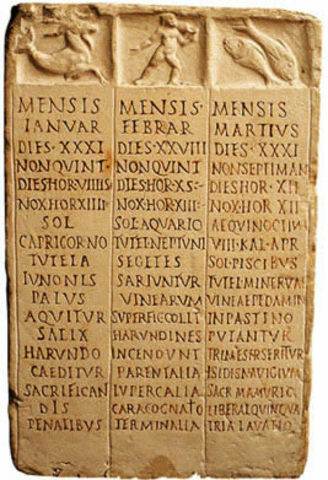 MENSIS
IANVAR
DIES·XXXI
NONQVINT
DIESHORVIIIIS
NOXHORXIIII
SOL
CAPRICORNO
TVTELA
IVNONIS
PALVS
AQVITVR
SALIX
HARVNDO
CAEDITVR
SACRIFICAN
DIS
PENATIBVS
MENSIS·
FEBRAR
DIES·XXVIII
NONQVINT
DIESHOR·XS
NOXHORXIII
SOL·AQVARIO
TVTEL·NEPTVNI
SEGETES
SARIVNTVR
VINEARVM
SVPERFIC·COLIT
HARVNDINES
INCENDVNT
PARENTALIA
LVPERCALIA
CARACOGNATO
TERMINALIA
MENSIS
MARTIVS
DIES·XXXI
NONSEPTIMAN
DIESHOR·XII
NOX·HOR·XII
AEQVINOCTIVM
VIII·KAL·APR
SOL·PISCIBVS
TVTEL·MINERVAE
VINEAEPEDAMIN
INPASTINO
PVTANTVR
TRIMESTRSERITVR
ISIDISNAVIGIVM
SACR·MAMVRIO
LIBERALQVINQVA
TRIALAVATIO